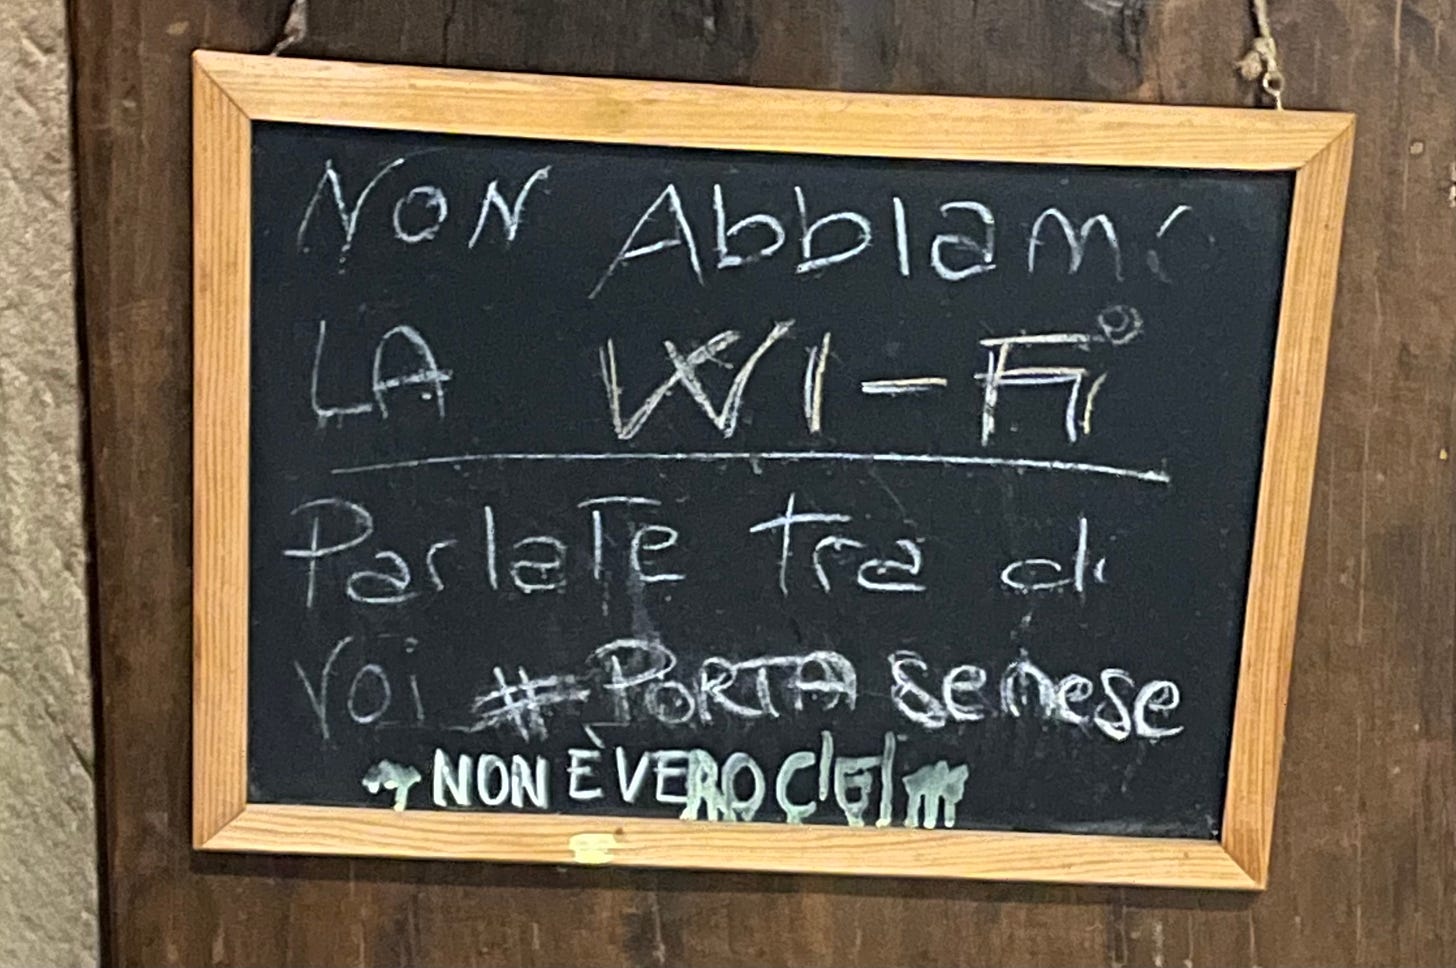 NON Abbiam
LA WI-Fi
Parlate tra di
voi #PORTA senese
NON È VERO